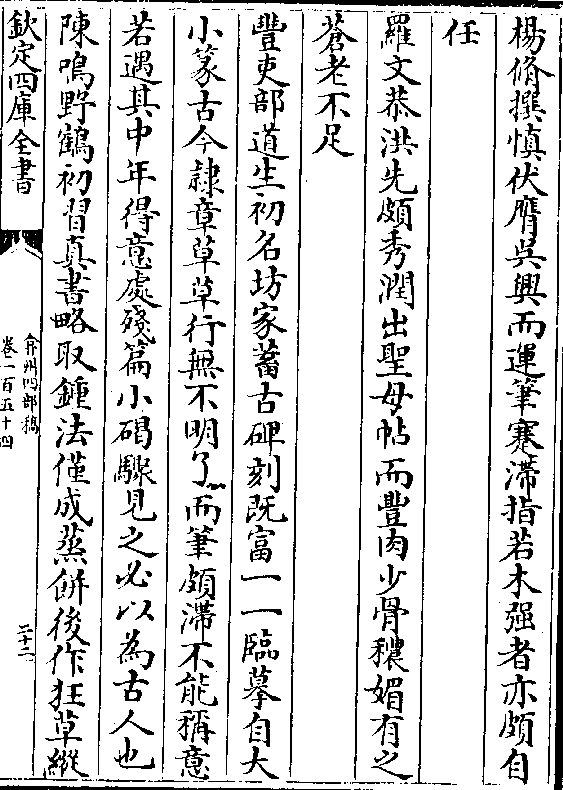 楊脩撰慎伏膺吳興而運筆蹇滯指若木强者亦頗自
任
羅文恭洪先頗秀潤出聖母帖而豐肉少骨穠媚有之
蒼老不足
豐吏部道生初名坊家蓄古碑刻既富一一臨摹自大
小篆古今隷章草草行無不明了而筆頗滯不能稱意
若遇其中年得意處殘篇小碣驟見之必以為古人也
陳鳴野鶴初習真書略取鍾法僅成蒸餅後作狂草縱
欽定四庫全書
弇州四部稿
卷一百五十四
二十二